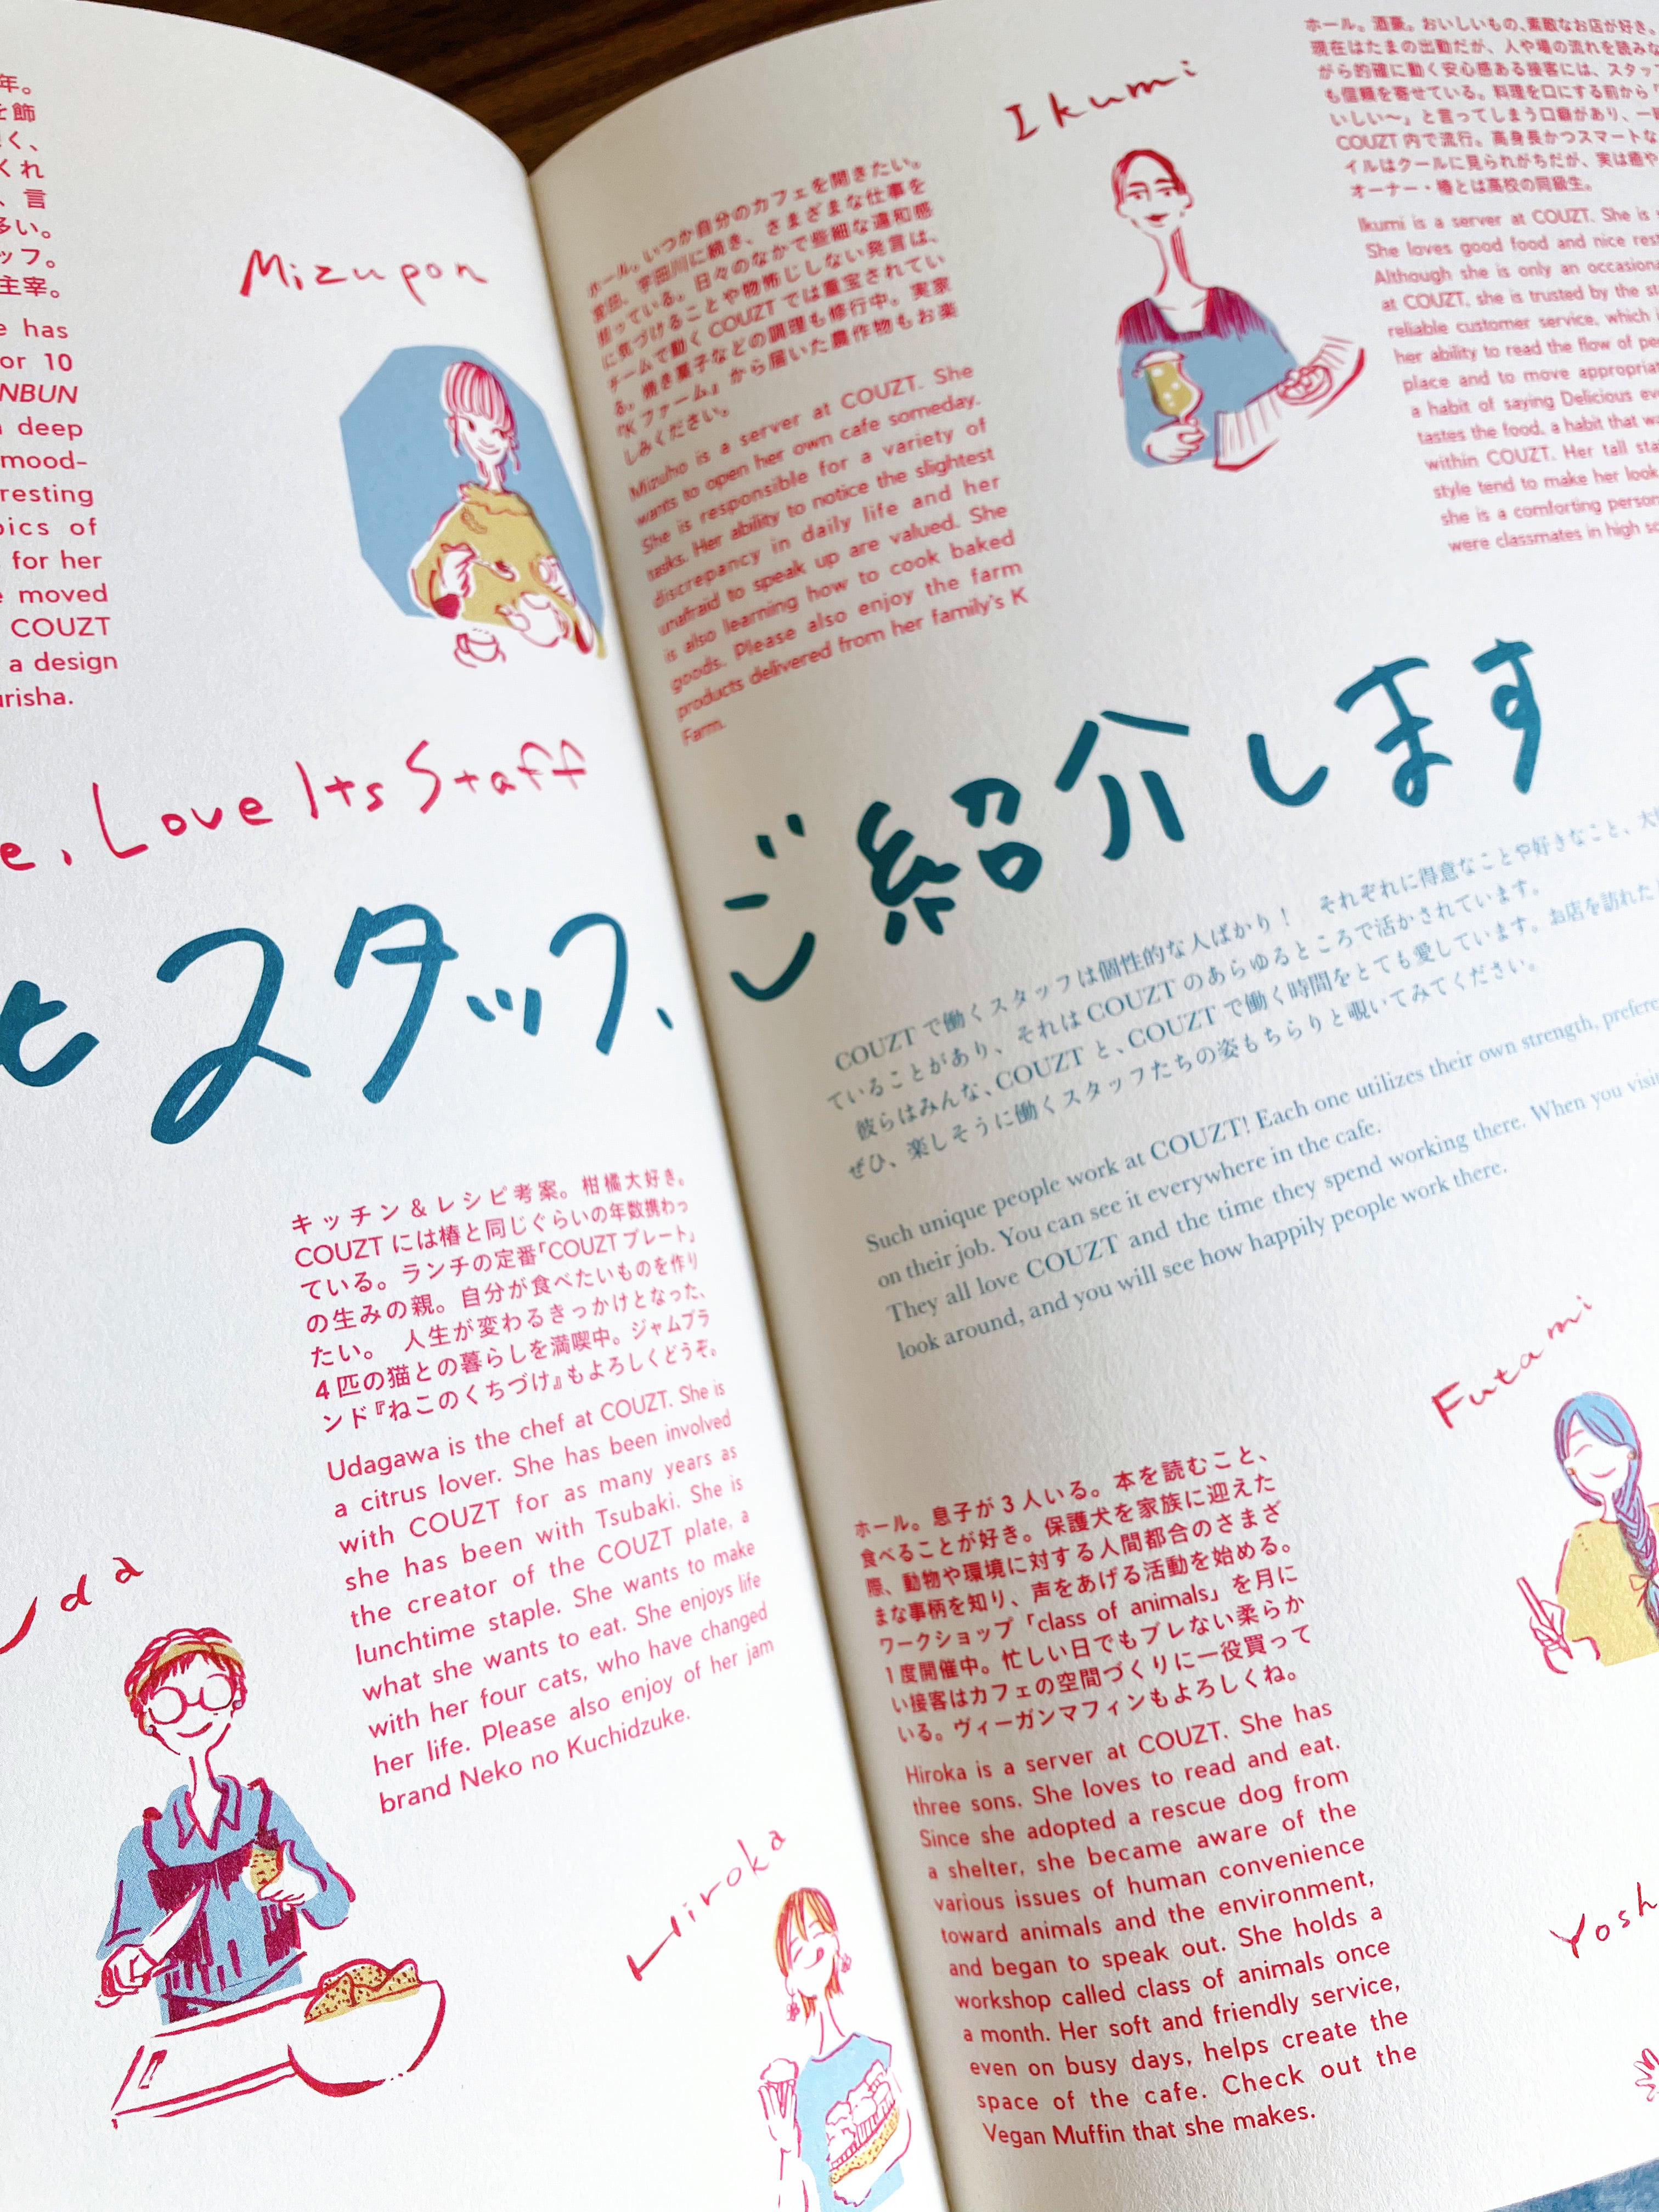 年。
を飾
く、
くれ
、言
多い。
ッフ。
主宰。
e has
or 10
NBUN
deep
mood-
resting
pics of
for her
e moved
COUZT
a design
urisha.
Mizupon
ホール。いつか自分のカフェを開きたい。
宮田、宇田川に続き、さまざまな仕事を
担っている。日々のなかで些細な違和感
に気づけることや物怖じしない発言は、
チームで動くCOUZTでは重宝されてい
る。焼き菓子などの調理も修行中。実家
『Kファーム』から届いた農作物もお楽
しみください。
Mizuho is a server at COUZT. She
wants to open her own cafe someday.
She is responsible for a variety of
tasks. Her ability to notice the slightest
discrepancy in daily life and her
unafraid to speak up are valued. She
is also learning how to cook baked
goods. Please also enjoy the farm
products delivered from her family's K
Farm.
Ikumi
ホール。酒豪。おいしいもの、素敵なお店が好き。
現在はたまの出勤だが、人や場の流れを読みな
がら的確に動く安心感ある接客には、スタッフ
も信頼を寄せている。料理を口にする前から「
いしい〜」と言ってしまう口癖があり、一
COUZT内で流行。高身長かつスマートな
イルはクールに見られがちだが、実は癒や
オーナー・椿とは高校の同級生。
Ikumi is a server at COUZT. She is
She loves good food and nice rest
Although she is only an occasiona
at COUZT, she is trusted by the st
reliable customer service, which i
her ability to read the flow of pe
place and to move appropriat
a habit of saying Delicious ev
tastes the food, a habit that wa
within COUZT. Her tall sta
style tend to make her look
she is a comforting person
were classmates in high sc
e, Love Its Staff
とスタッフ、ご紹介します
COUZTで働くスタッフは個性的な人ばかり！　それぞれに得意なことや好きなこと、大
ていることがあり、それはCOUZTのあらゆるところで活かされています。
彼らはみんな、COUZTと、COUZTで働く時間をとても愛しています。お店を訪れた
ぜひ、楽しそうに働くスタッフたちの姿もちらりと覗いてみてください。
Such unique people work at COUZT! Each one utilizes their own strength, prefere
on their job. You can see it everywhere in the cafe.
They all love COUZT and the time they spend working there. When you visi
look around, and you will see how happily people work there.
キッチン＆レシピ考案。柑橘大好き。
COUZTには椿と同じぐらいの年数携わっ
ている。ランチの定番「COUZTプレート」
の生みの親。自分が食べたいものを作り
たい。　人生が変わるきっかけとなった、
4匹の猫との暮らしを満喫中。ジャムブラ
ンド『ねこのくちづけ』もよろしくどうぞ。
Udagawa is the chef at COUZT. She is
a citrus lover. She has been involved
with COUZT for as many years as
she has been with Tsubaki. She is
the creator of the COUZT plate, a
lunchtime staple. She wants to make
what she wants to eat. She enjoys life
with her four cats, who have changed
her life. Please also enjoy of her jam
brand Neko no Kuchidzuke.
da
Hiroka
ホール。息子が3人いる。本を読むこと、
食べることが好き。保護犬を家族に迎えた
際、動物や環境に対する人間都合のさまざ
まな事柄を知り、声をあげる活動を始める。
ワークショップ「class of animals」を月に
1度開催中。忙しい日でもブレない柔らか
い接客はカフェの空間づくりに一役買って
いる。ヴィーガンマフィンもよろしくね。
Hiroka is a server at COUZT. She has
three sons. She loves to read and eat.
Since she adopted a rescue dog from
a shelter, she became aware of the
various issues of human convenience
toward animals and the environment,
and began to speak out. She holds a
workshop called class of animals once
a month. Her soft and friendly service,
even on busy days, helps create the
space of the cafe. Check out the
Vegan Muffin that she makes.
Futami
Yosh